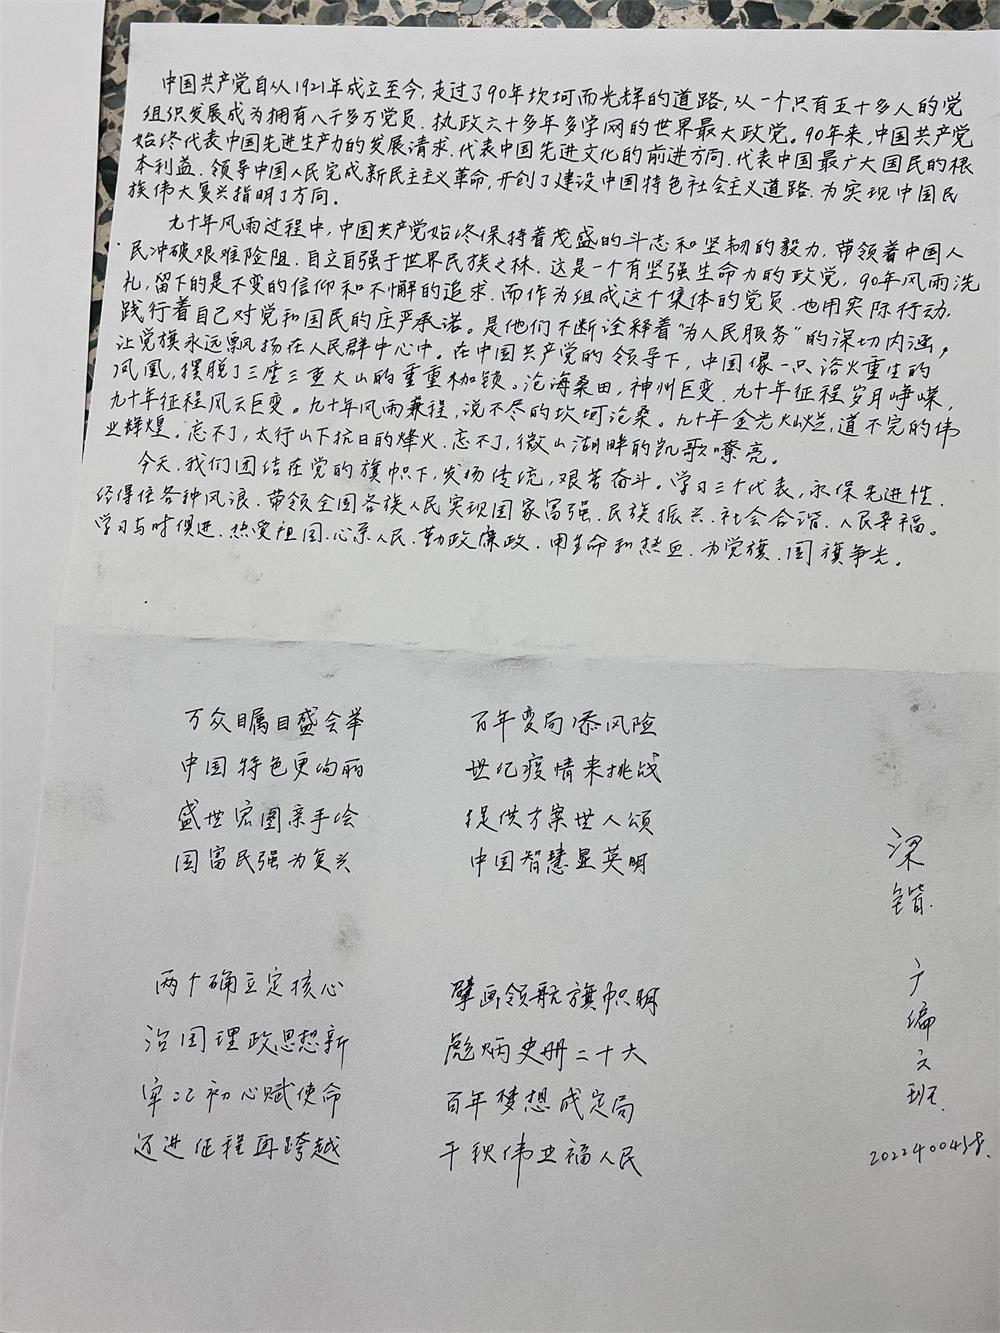 中国共产党自从1921年成立至今,走过了90年坎坷而光辉的道路,从一个只有五十多人的党
组织发展成为拥有八千多万党员、执政六十多年多学网的世界最大政党。90年来,中国共产党
始终代表中国先进生产力的发展请求、代表中国先进文化的前进方向、代表中国最广大国民的根
本利益、领导中国人民完成新民主主义革命,开创了建设中国特色社会主义道路、为实现中国民
族伟大复兴指明了方向。
九十年风雨过程中,中国共产党始终保持着茂盛的斗志和坚韧的毅力,带领着中国人
民冲破艰难险阻、自立自强于世界民族之林、这是一个有坚强生命力的政党,90年风雨洗
礼,留下的是不变的信仰和不懈的追求、而作为组成这个集体的党员、也用实际行动、
践行着自己对党和国民的庄严承诺。是他们不断诠释着“为人民服务”的深切内涵,
让党旗永远飘扬在人民群中心中。在中国共产党的领导下,中国像一只浴火重生的
凤凰,摆脱了三座三重大山的重重枷锁。沧海桑田,神州巨变、九十年征程岁月峥嵘,
九十年征程风云巨变。九十年风雨兼程,说不尽的坎坷沧桑。九十年金光灿烂,道不完的伟
业辉煌。忘不了,太行山下抗日的烽火、忘不了,微山湖畔的凯歌嘹亮。
今天、我们团结在党的旗帜下,发扬传统,艰苦奋斗。学习三个代表,永保先进性、
经得住各种风浪、带领全国各族人民实现国家富强、民族振兴、社会合谐、人民幸福。
学习与时俱进、热爱祖国、心系人民、勤政廉政、用生命和热血、为党旗、国旗争光。
万众瞩目盛会举 百年变局添风险
中国特色更绚丽 世纪疫情来挑战
盛世宏图亲手绘 提供方案世人颂
国富民强为复兴 中国智慧显英明
梁
锴
两个确立定核心 擘画领航旗帜明
治国理政思想新 彪炳史册二十大
牢记初心赋使命 百年梦想成定局
迈进征程再跨越 千秋伟业福人民
广
编
六
班
2022400458